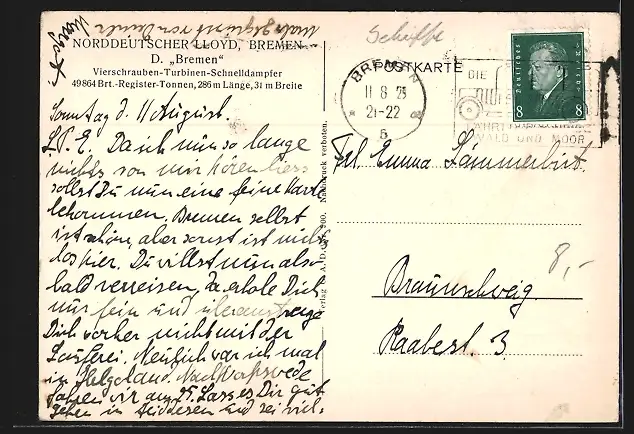 NORDDEUTSCHER LLOYD, BREMEN
D. „Bremen"
Vierschrauben-Turbinen-Schnelldampfer
49864 Brt.-Register-Tonnen, 286 m Länge, 31 m Breite
Sonntag d. 11 August.
L. E. Da ich nun so lange
nichts von mir hören liess
sollst Du nun eine feine Karte
bekommen. Bremen selbst
ist schön, aber sonst ist nichts
los hier. Du willst nun also
bald verreisen, da erhole Dich
nur fein und überanstrenge
Dich vorher nicht mit der
Lauferei. Neulich war ich mal
in Helgoland. Nach
fahren wir am 25. Lass es Dir gut
gehen in und sei viel-
Nachdruck verboten.
Schiffe
POSTKARTE
BREMEN
11 8 29
21-22
5
DIE
WALD UND MOOR
Deutsches Reich
8 8
Frl. Emma Lämmerhirt.
Braunschweig.
Raabestr. 3.
8,-